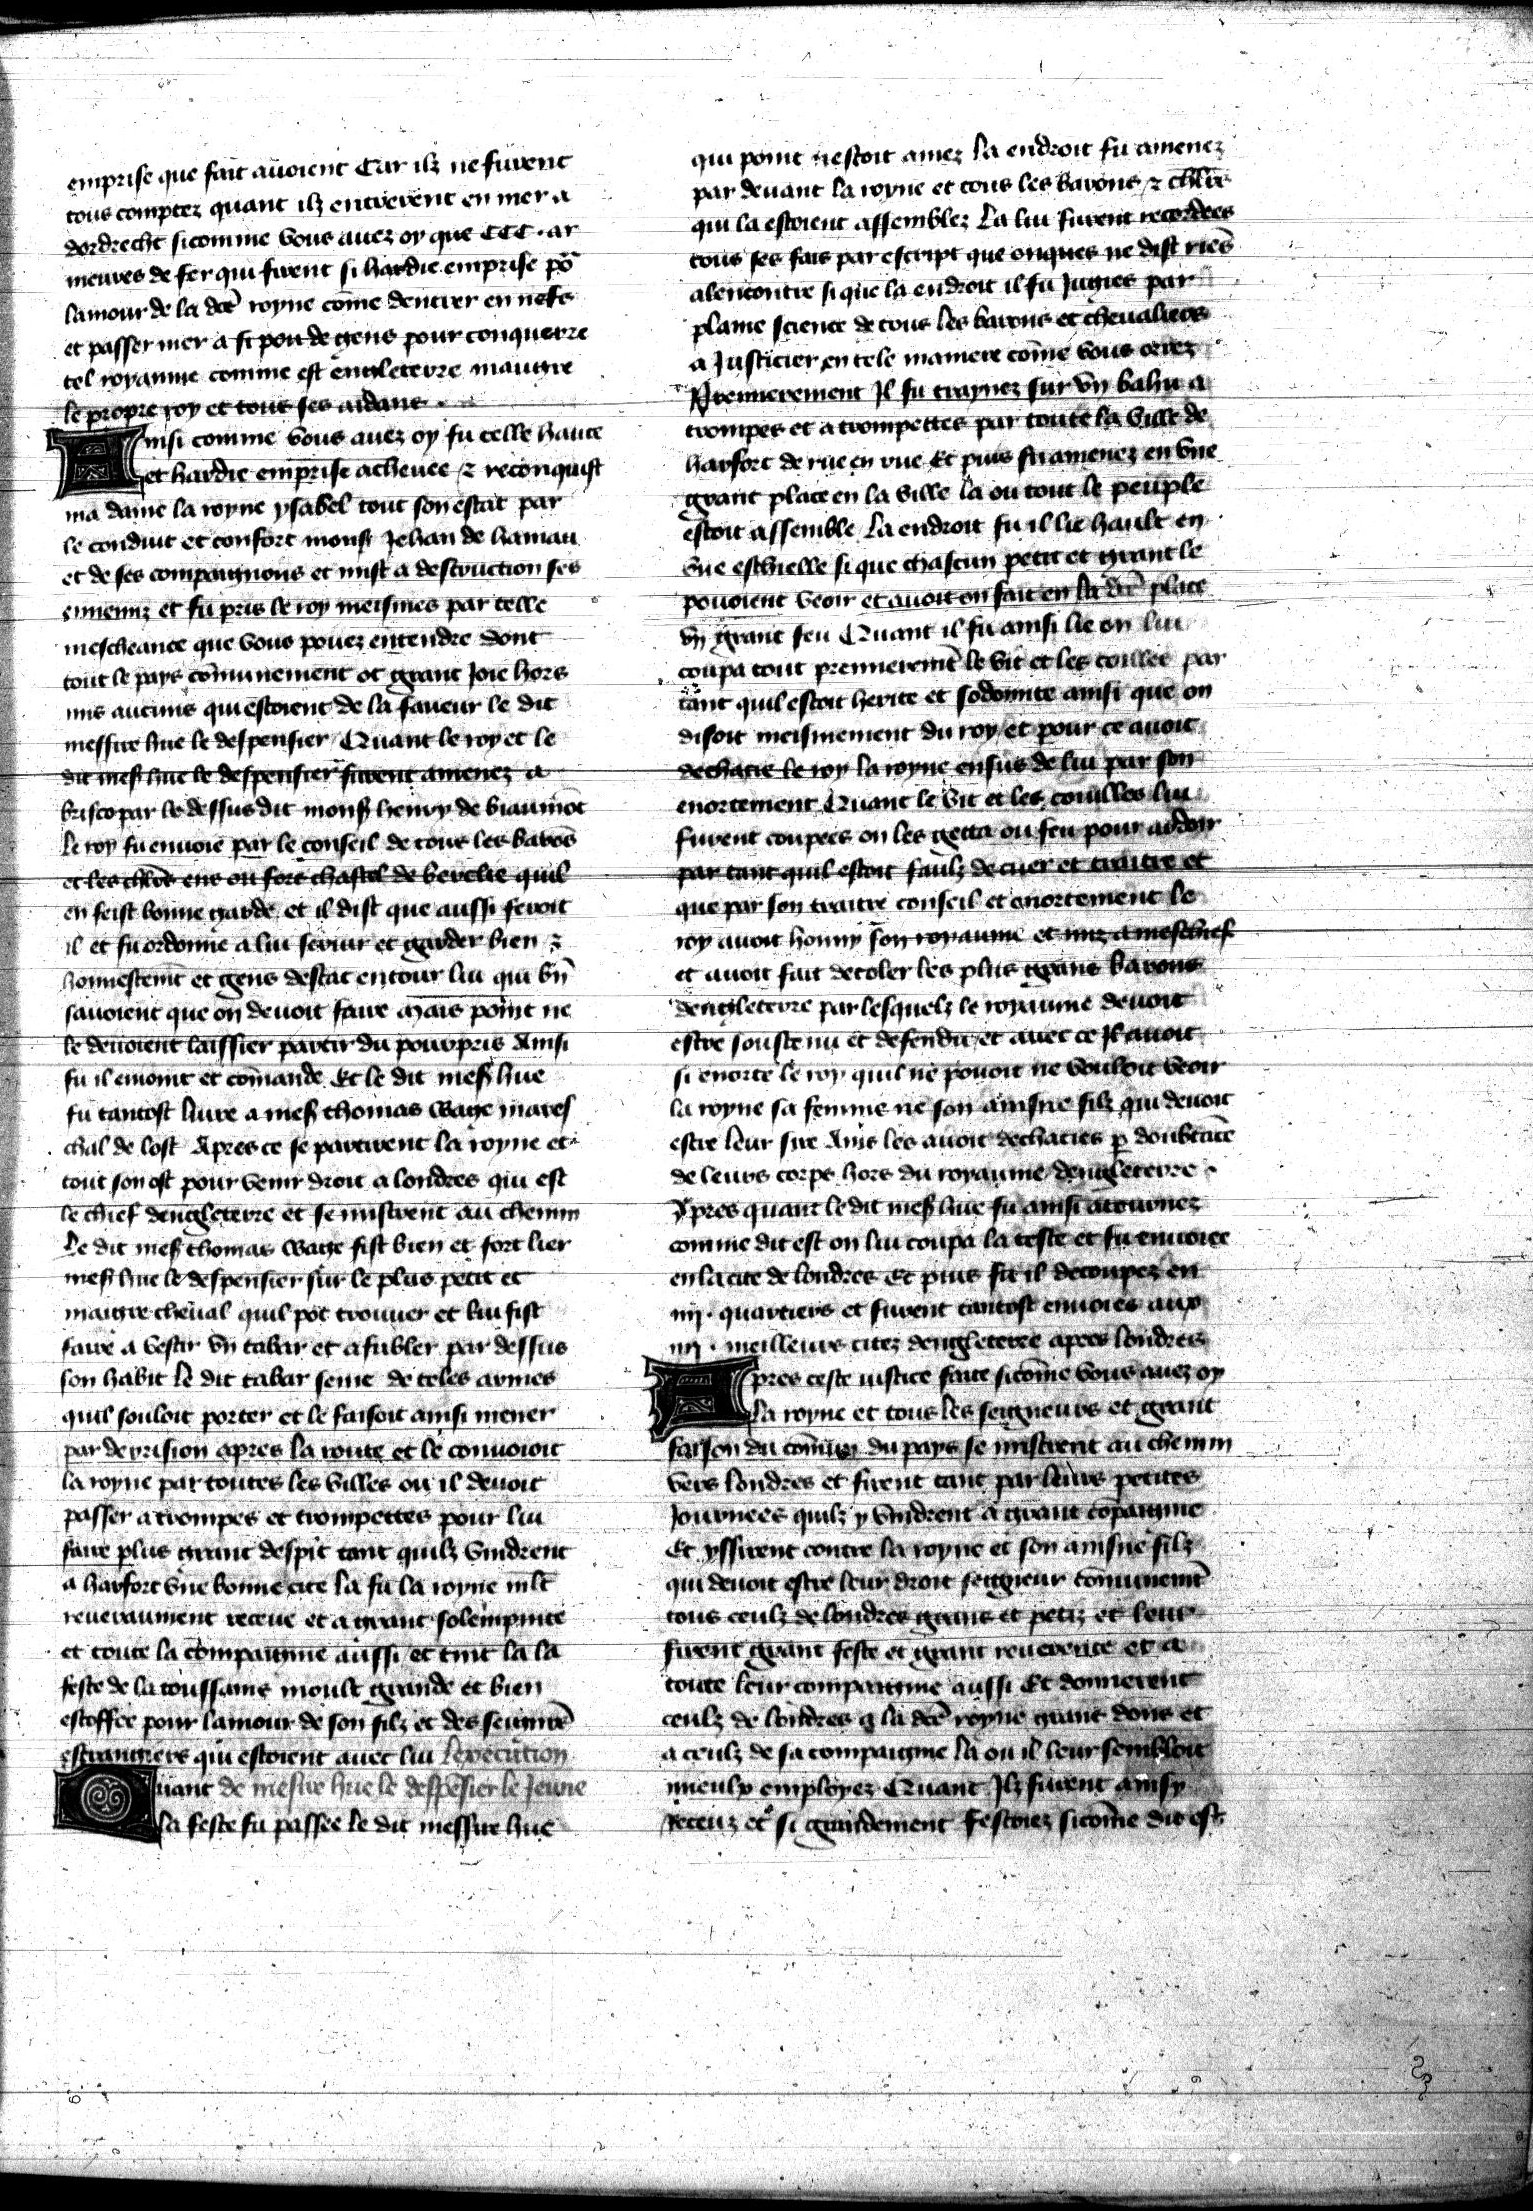 emprise que fait auoient Car ilz ne furent
tous comptez quant ilz entrerent en mer a
dordrecht sicomme vous auez oy que CCC. ar
meures de fer qui firent si hardie emprise pō
lamour de la dcē royne cōme dentrer en nefs
et passer mer a si pou de gens pour conquerre
tel royaume comme est engleterre maugre
le propre roy et tous ses aidans .
Ainsi comme vous auez oy fu celle haute
et hardie emprise acheuee ⁊ reconquist
ma dame la royne ysabel tout son estat par
le conduit et confort monsʳ Jehan de hainau
et de ses compaignons et mist a destruction ses
ennemiz et fu pris le roy meismes par celle
mescheance que vous pouez entendre dont
tout le pays cōmunement ot grant Joie hors
mis aucuns qui estoient de la faueur le dit
messire hue le despensier Quant le roy et le
dit mesʳ hue le despensier furent amenez a
bristo par le dessus dit monsʳ henry de biaumōt
le roy fu enuoie par le conseil de tous les barōs
et les chlrs̄ ens ou fort chastel de berclie quil
en feist bonne garde et il dist que aussi feroit
il et fu ordonne a lui seruir et garder bien ⁊
honnestemt̄ et gens destat entour lui qui bn̄
sauoient que on deuoit faire mais point ne
le deuoient laissier partir du pourpris Ainsi
fu il enioint et cōmande Et le dit mesʳ hue
fu tantost liure a mesʳ thomas wage mares
chal de lost Apres ce se partirent la royne et
tout son ost pour venir droit a londres qui est
le chief dengleterre et se mistrent au chemin
Le dit mesʳ thomas wage fist bien et fort lier
mesʳ hue le despensier sur le plus petit et
maigre cheual quil pot trouuer et lui fist
faire a vestir vn tabar et afubler par dessus
son habit le dit tabar seme de teles armes
quil souloit porter et le faisoit ainsi mener
par deyrision apres la route et le conuoioit
la royne par toutes les villes ou il deuoit
passer a trompes et trompettes pour lui
faire plus grant despit tant quilz vindrent
a harfort vne bonne cite la fu la royne mlt̄
reueraument receue et a grant solempnite
et toute la compaignie aussi et tint la la
feste de la toussains moult grande et bien
estoffee pour lamour de son filz et des seignrē
estrangiers qui estoient auec lui Lexecution
Quant de mesire hue le despēsier le Jeune
la feste fu passee le dit messire hue
qui point nestoit amez la endroit fu amenez
par deuant la royne et tous les barons ⁊ chlrs̄
qui la estoient assemblez La lui furent recordees
tous ses fais par escript que onques ne dist riēs
alencontre si que la endroit il fu Jugies par
plaine science de tous les barons et cheualiers
a Justicier en tele maniere cōme vous orrez
Premierement Il fu traynez sur vn bahu a
trompes et a trompettes par toute la ville de
harfort de rue en rue Et puis fu amenez en vne
grant place en la ville la ou tout le peuple
estoit assemble La endroit fu il lie hault en
vne eschielle si que chascun petit et grant le
pouoient veoir et auoit on fait en la dcē place
vn grant feu Quant il fu ainsi lie on lui
coupa tout premieremt̄ le vit et les coilles par
tant quil estoit herite et sodomite ainsi que on
disoit meismement du roy et pour ce auoit
dechacie le roy la royne ensus de lui par son
enortement Quant le vit et les couilles lui
furent coupees on les getta ou feu pour ardoir
par tant quil estoit faulz de cuer et traitre et
que par son traitre conseil et enortement le
roy auoit honny son royaume et mis a meschief
et auoit fait decoler les plus grans barons
dengleterre par lesquelz le royaume deuoit
estre soustenu et defendu et auec ce Il auoit
si enorte le roy quil ne pouoit ne vouloit veoir
la royne sa femme ne son ainsne filz qui deuoit
estre leur sire Ains les auoit dechacies p̄ doubtāce
de leurs corps hors du royaume dengleterre .
Apres quant le dit mesʳ hue fu ainsi atournez
comme dit est on lui coupa la teste et fu enuoiee
en la cite de londres Et puis fu il decoupez en
iiij . quartiers et furent tantost enuoies aux
iiij . meilleurs citez dengleterre apres londres
Apres ceste iustice faite sicōme vous auez oy
la royne et tous les seigneurs et grant
faison du cōmun du pays se mistrent au chemin
vers londres et firent tant par leurs petites
Journees quilz y vindrent a grant cōpaignie
Et yssirent contre la royne et son ainsne filz
qui deuoit estre leur droit seigneur cōmunemt̄
tous ceulz de londres grans et petiz et leur
firent grant feste et grant reuerence et a
toute leur compaignie aussi Et donnerent
ceulz de londres a la dcē royne grans dons et
a ceulz de sa compaignie la ou il leur sembloit
mieulx employez Quant Ilz furent ainsy
receuz et si grandement festoiez sicōme dit est